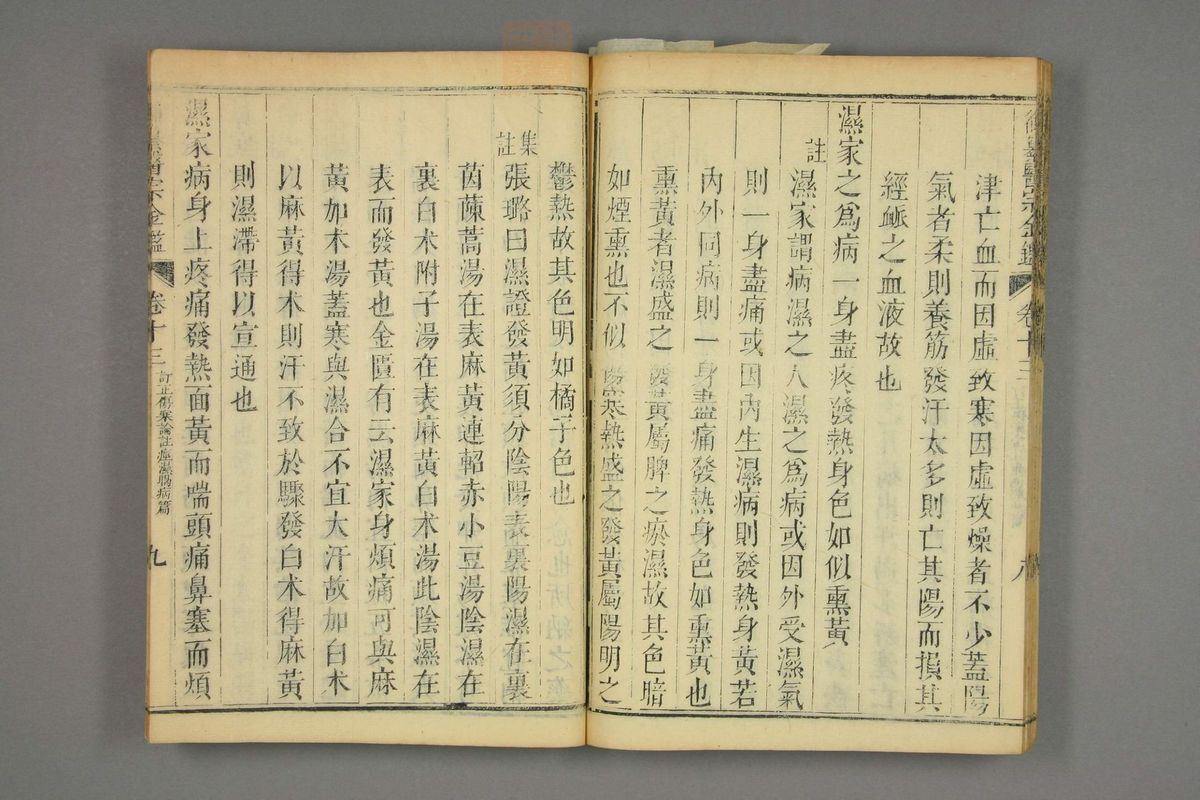 津亡血而因虛致寒因虛致燥者不少蓋陽
氣者柔則養筋發汗太多則亡其陽而損其
經脈之血液故也
濕家之爲病一身盡疼發熱身色如似熏黃
註
濕家謂病濕之人濕之爲病或因外受濕氣
則一身盡痛或因內生濕病則發熱身黃若
內外同病則一身盡痛發熱身色如熏黃也
熏黃者濕盛之發黃屬脾之瘀濕故其色暗
如煙熏也不似陽寒熱盛之發黃屬陽明之
鬱熱故其色明如橘子色也
集註
張璐曰濕證發黃須分陰陽表裏陽濕在裏
茵蔯蒿湯在表麻黃連軺赤小豆湯陰濕在
裏白朮附子湯在表麻黃白朮湯此陰濕在
表而發黃也金匱有云濕家身煩痛可與麻
黃加朮湯蓋寒與濕合不宜大汗故加白朮
以麻黃得朮則汗不致於驟發白朮得麻黃
則濕滯得以宣通也
濕家病身上疼痛發熱面黃而喘頭痛鼻塞而煩
醫宗金鑑 卷十三 訂正傷寒論註痙濕暍病篇 九